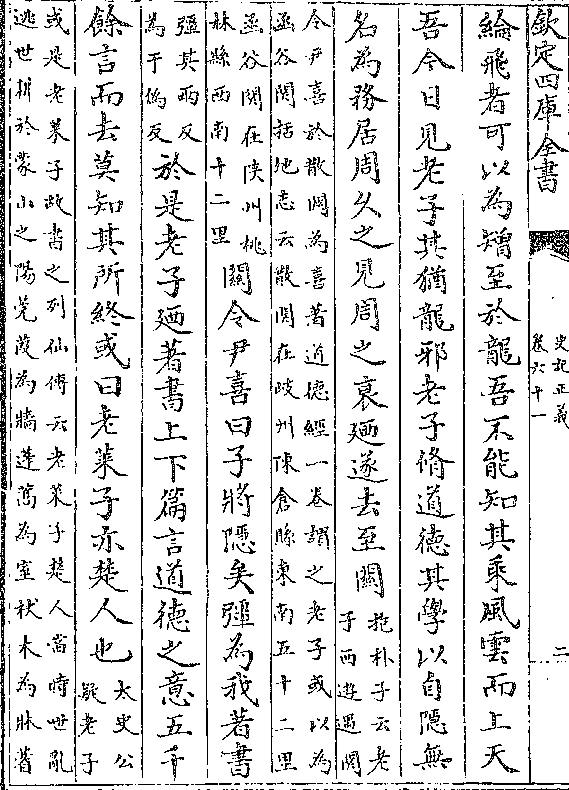 欽定四庫全書
史記正義
卷六十一
二
綸飛者可以為矰至於龍吾不能知其乗風雲而上天
吾今日見老子其猶龍邪老子脩道德其學以自隠無
名為務居周乆之見周之衰廼遂去至關
抱朴子云老
子西遊遇關
令尹喜於散闗為喜著道德經一巻謂之老子或以為
函谷闗括地志云散闗在岐州陳倉縣東南五十二里
函谷闗在陜州桃
林縣西南十二里
關令尹喜曰子將隠矣彊為我著書
彊其兩反
為于偽反
於是老子廼著書上下篇言道德之意五千
餘言而去莫知其所終或曰老萊子亦楚人也
太史公
疑老子
或是老萊子故書之列仙傳云老萊子楚人當時世亂
逃世耕於蒙山之陽莞葭為牆蓬蒿為室杖木為牀蓍